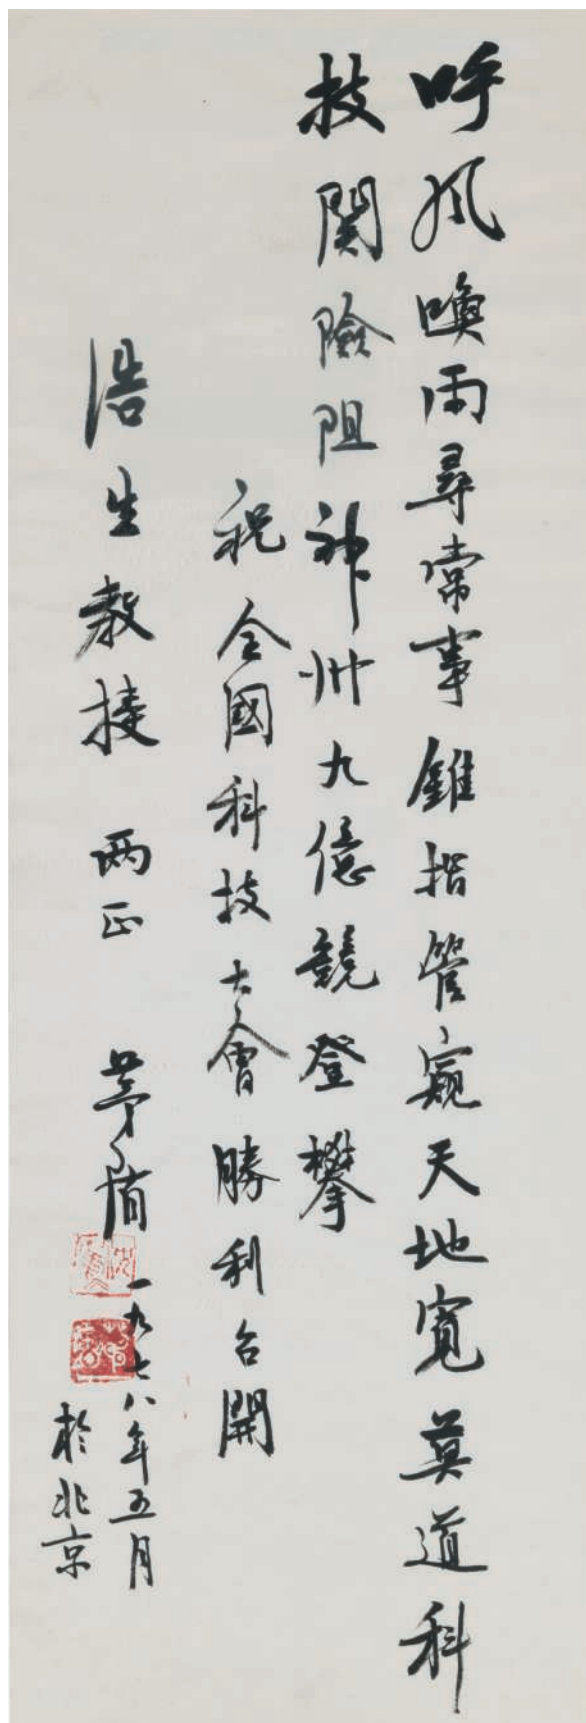 呼风喚雨尋常事錐指管窺天地寬莫道科
技関險阻神州九億競登攀
祝全國科技大會勝利召開
浩生教授 两正 茅盾
一九七八年五月
於北京